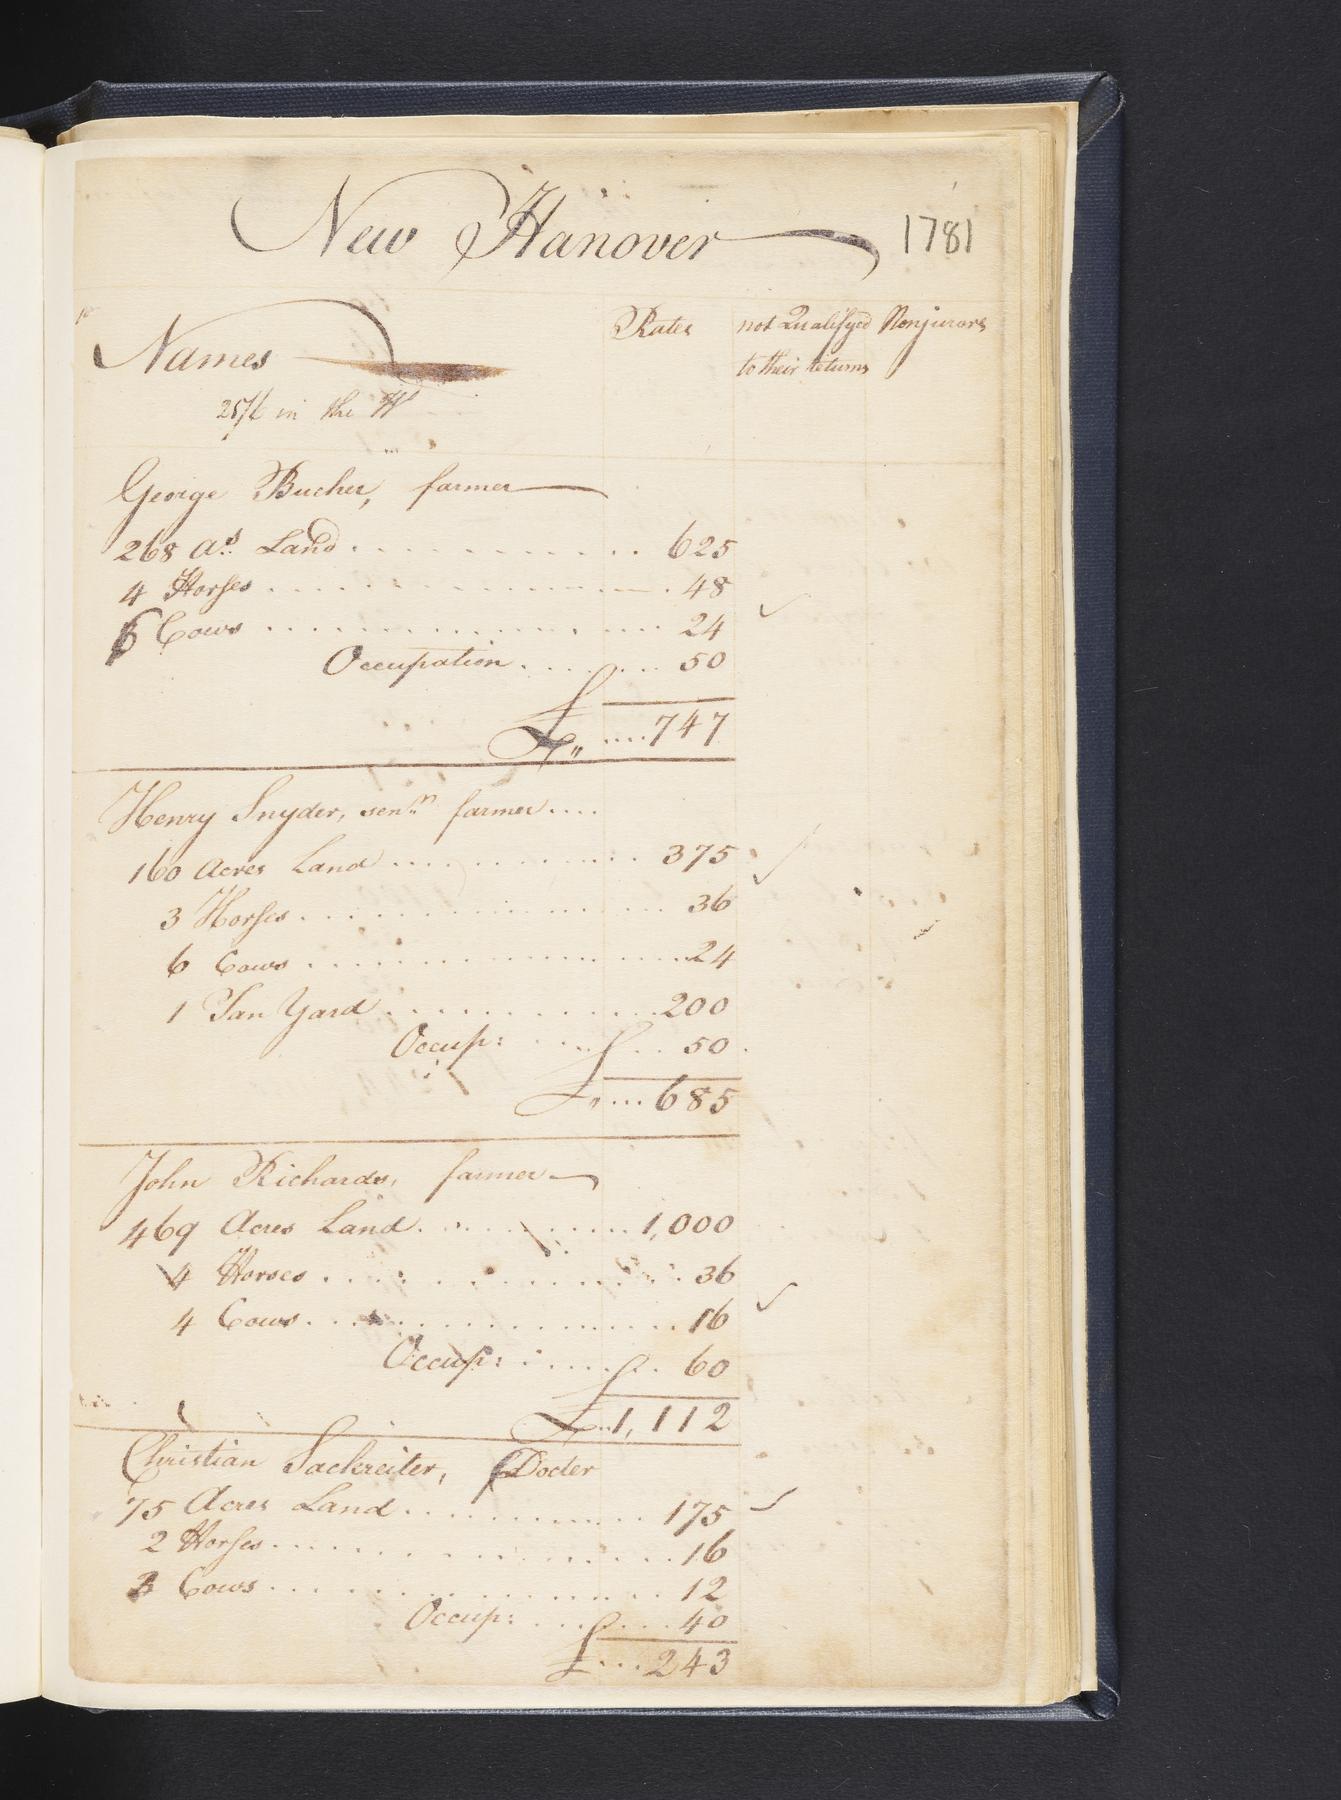 New Hanover 1781
Names Rates not Qualifyed Nonjurors
to their returns
in the
George Bucher, farmer
268 As. Land 625
4 Horses 48
6 Cows 24
Occupation 50
£ 747
Henry Snyder, senr. farmer
160 Acres Land 375
3 Horses 36
6 Cows 24
1 Tan Yard 200
Occup: 50
£ 685
John Richards, farmer
469 Acres Land 1,000
4 Horses 36
4 Cows 16
Occup: 60
£ 1,112
Christian Sackreiter, Docter
75 Acres Land 175
2 Horses 16
3 Cows 12
Occup: 40
£ 243